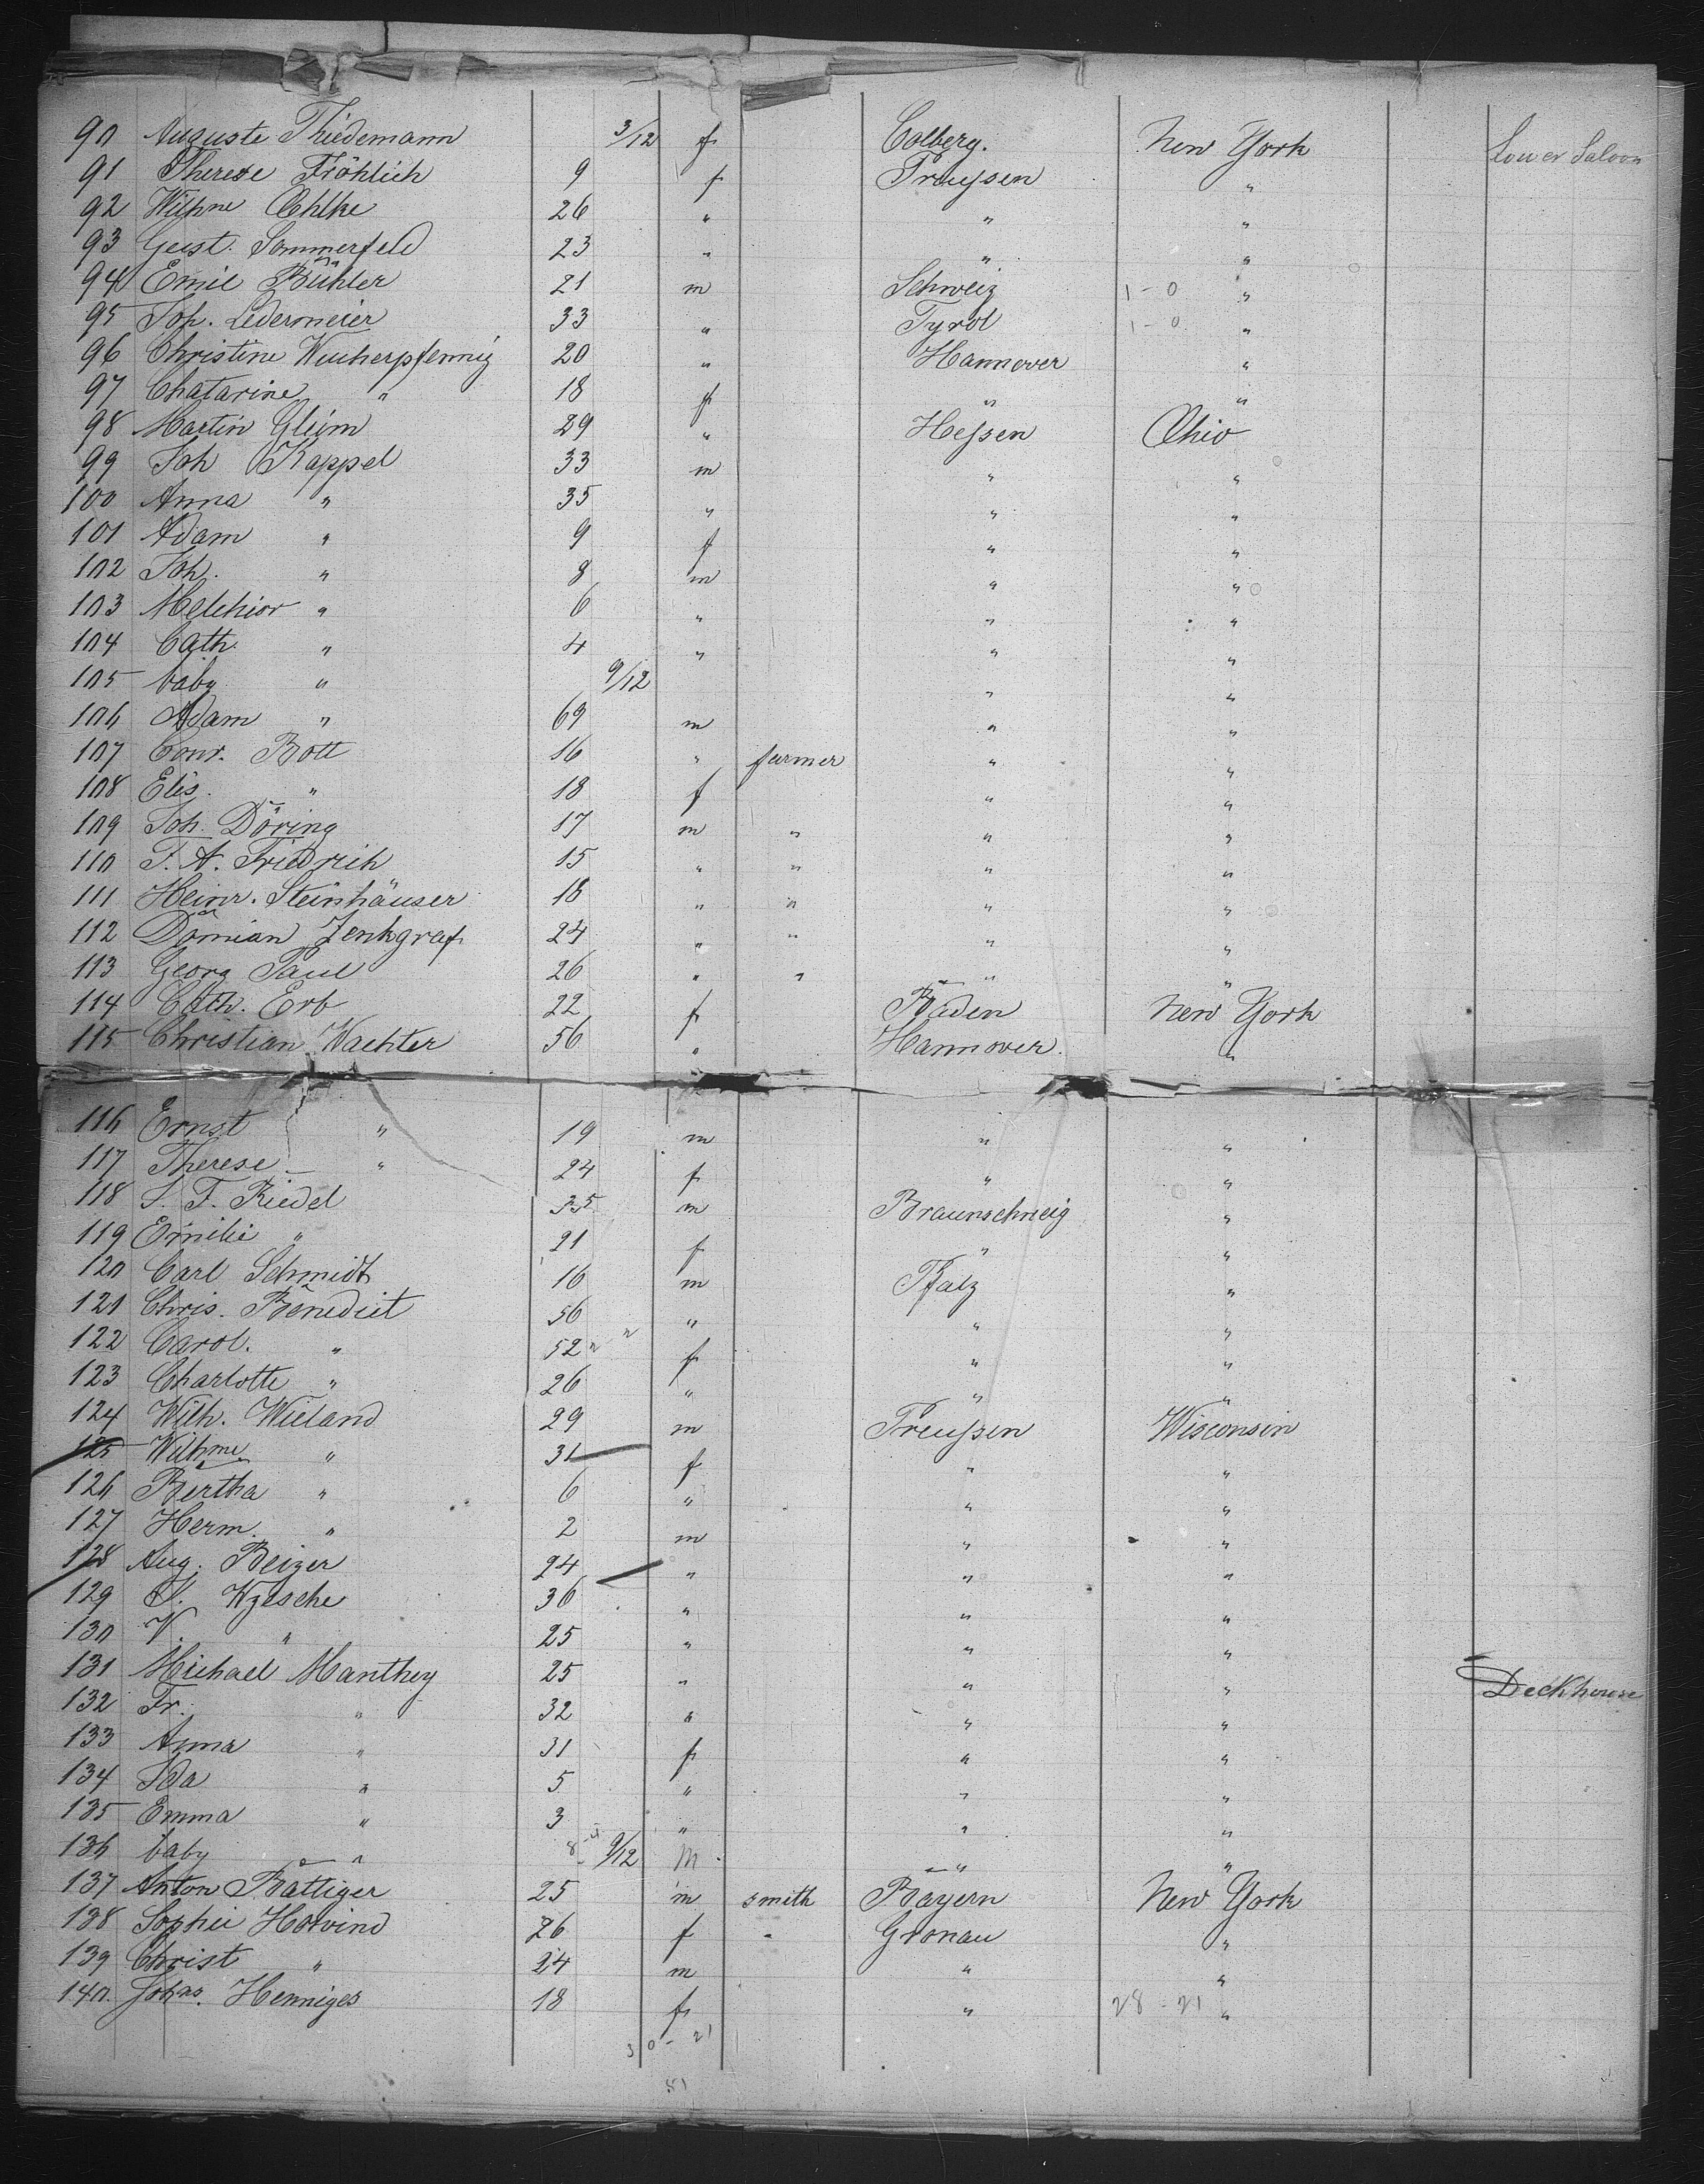 90 Auguste Thiedemann 3/12 f Colberg. New York Lower Saloon
91 Therese Fröhlich 9 f Preussen "
92 Wilhne Oehlke 26 " " "
93 Gust. Sommerfeld 23 " " "
94 Emil Bühler 21 m Schweiz 1-0 "
95 Joh. Ledermeier 33 " Tyrol 1-0 "
96 Christine Wucherpfennig 20 " Hannover "
97 Chatarine " 18 f " "
98 Martin Gleim 29 " Hessen Ohio
99 Joh Kappel 33 m " "
100 Anna " 35 " " "
101 Adam " 9 f " "
102 Joh. " 8 m " "
103 Melchior " 6 " " "
104 Cath. " 4 " " "
105 baby " 9/12 " "
106 Adam " 69 m " "
107 Conr. Bott 16 " farmer " "
108 Elis. " 18 f " "
109 Joh. Döring 17 m " " "
110 F. A. Friedrich 15 " " " "
111 Heinr. Steinhäuser 18 " " " "
112 Damian Zenkgraf 24 " " " "
113 Georg Paul 26 " " " "
114 Cath. Erb 22 f Baden New York
115 Christian Wachter 56 " Hannover. "
116 Ernst " 19 m " "
117 Therese " 24 f " "
118 S. F. Riedel 35 m Braunschweig "
119 Emilie " 21 f " "
120 Carl Schmidt 16 m Pfalz "
121 Chris. Benedict 56 " " "
122 Carol. " 52 f " "
123 Charlotte " 26 " " "
124 Wilh. Wieland 29 m Preussen Wisconsin
125 Wilhme " 31 f " "
126 Bertha " 6 " " "
127 Herm. " 2 m " "
128 Aug. Beizer 24 " " "
129 Wzesche 36 " " "
130 V. " 25 " " "
131 Michael Manthey 25 " " " Deckhouse
132 Fr. " 32 " " "
133 Anna " 31 f " "
134 Ida " 5 " " "
135 Emma " 3 " " "
136 baby " 9/12 m " "
137 Anton Battiger 25 m smith Bayern New York
138 Sophie Howind 26 f " Gronau "
139 Christ " 24 m " "
140. Johns. Henniges 18 f " 28-21 "
30-21
51